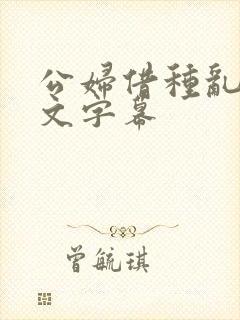 公婦借種亂
文字幕
曾毓琪